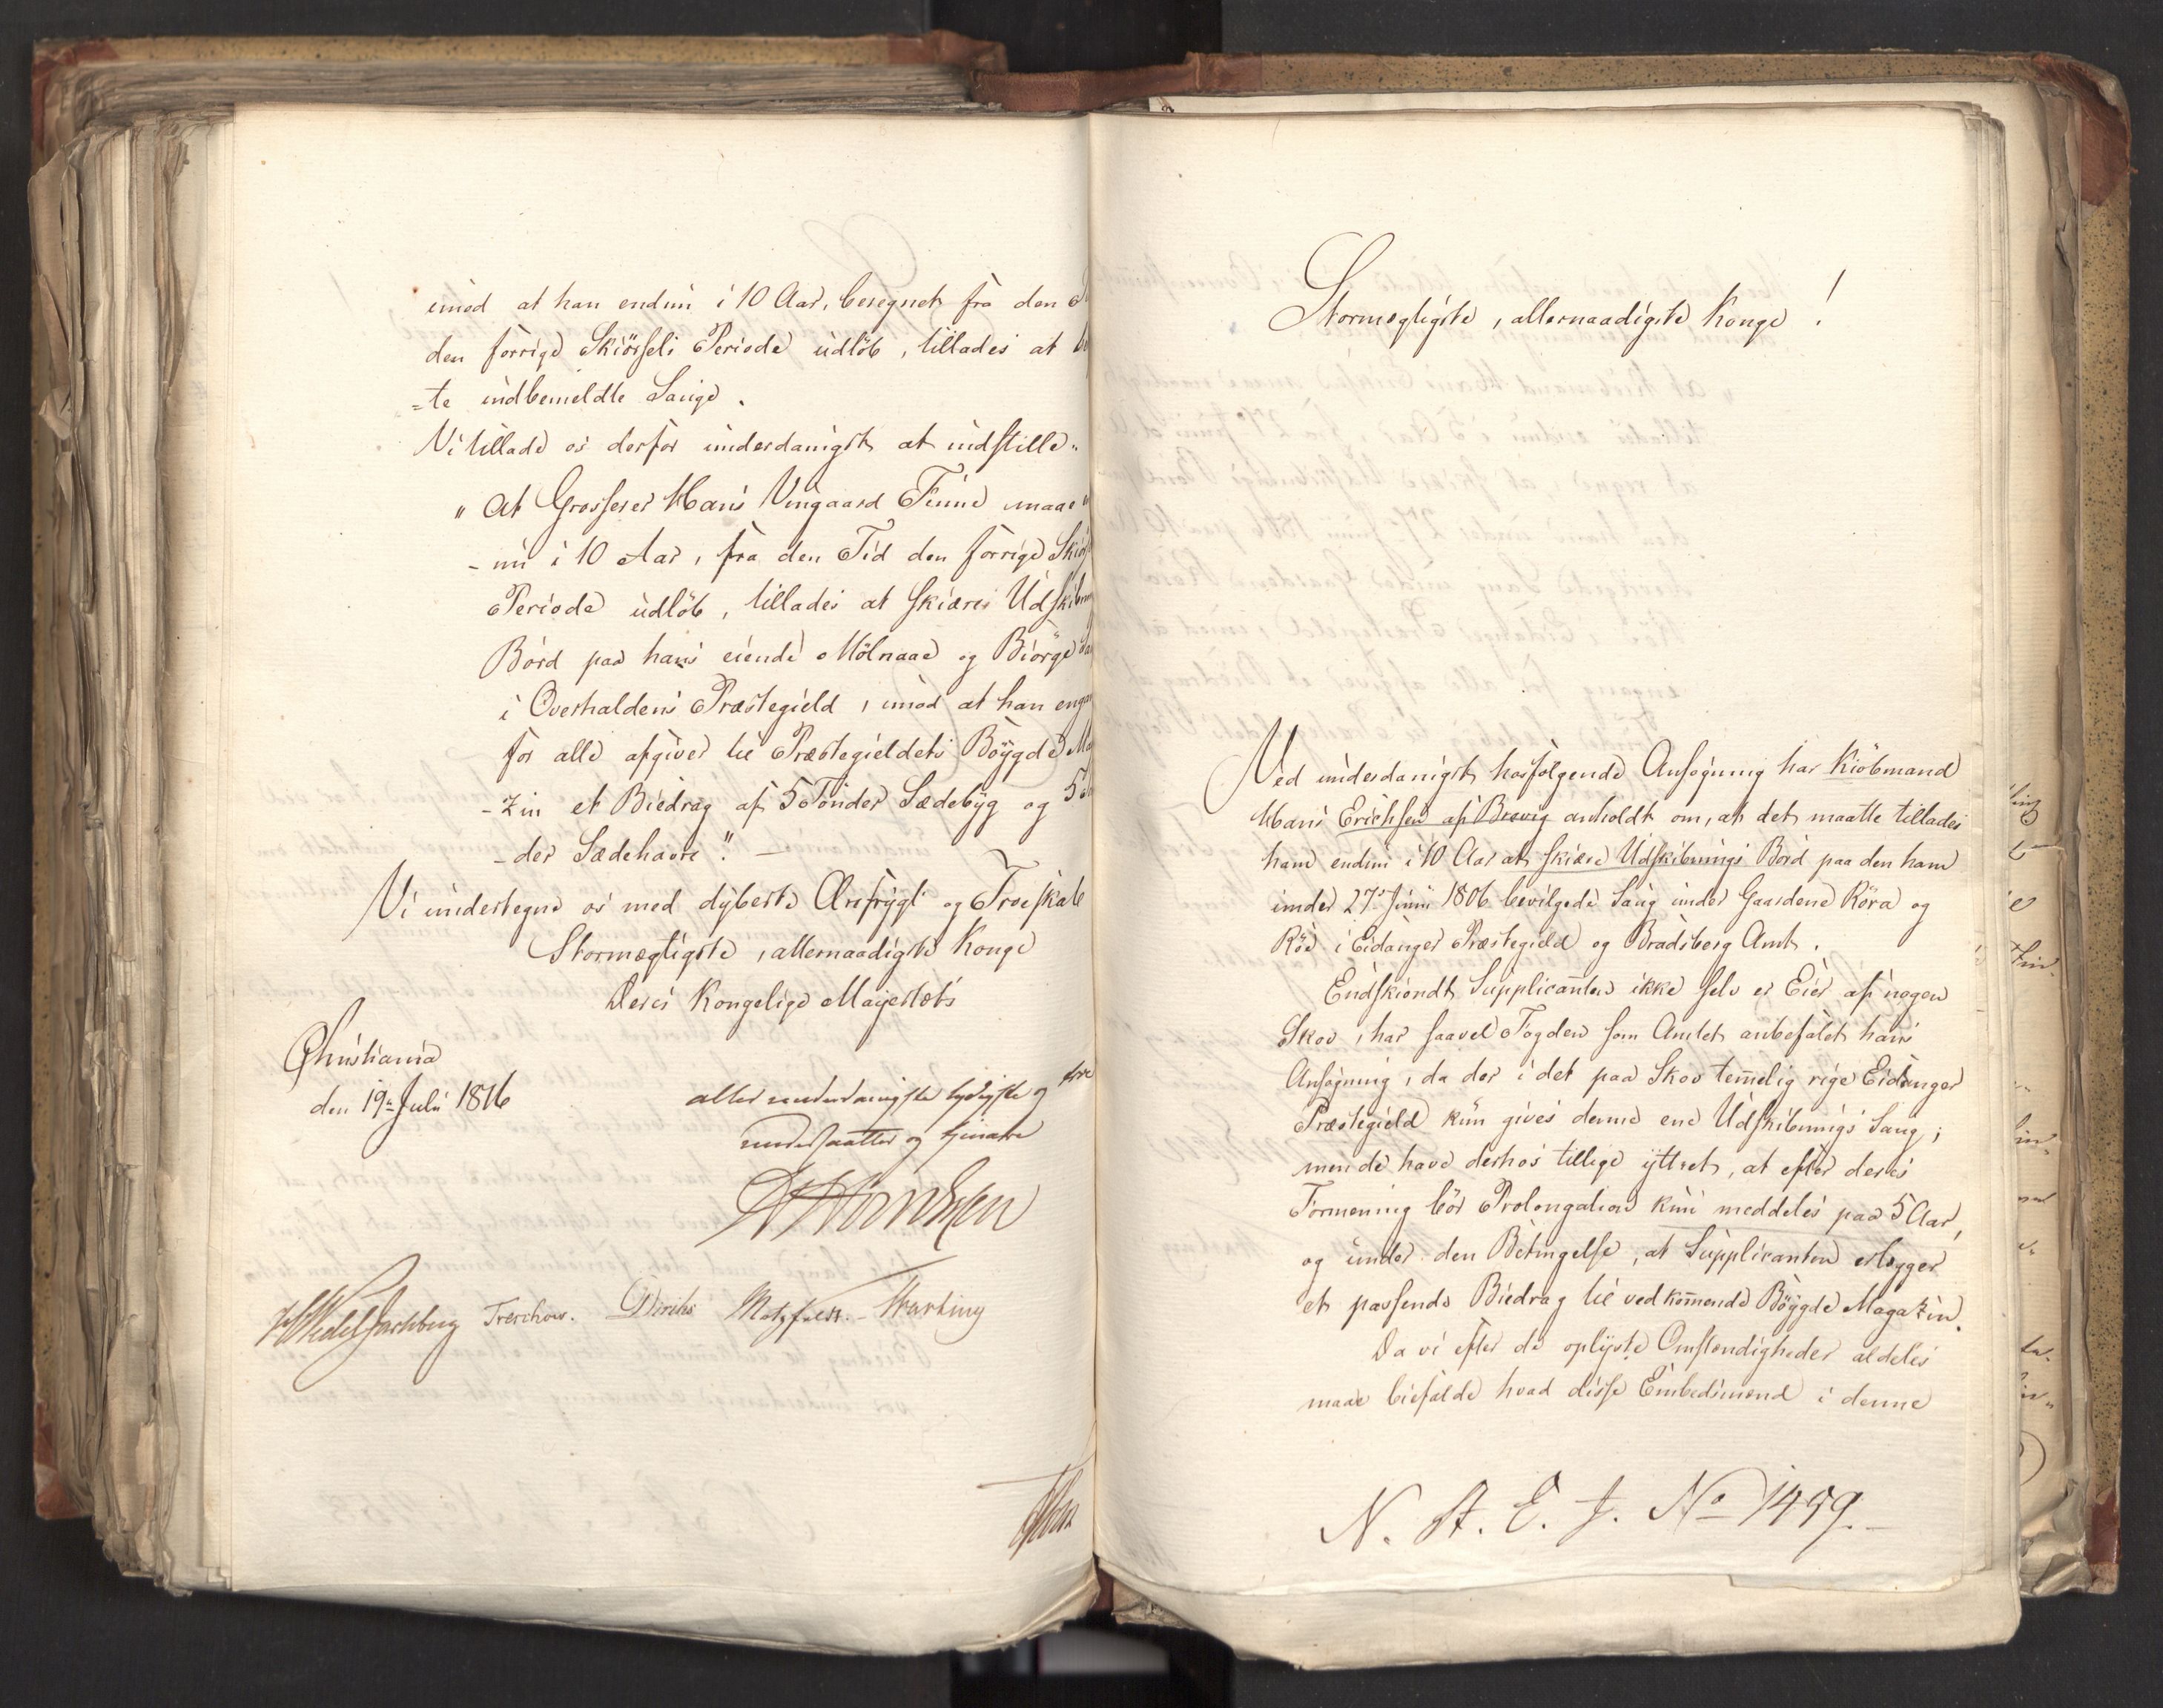 imod at han endnu i 10 Aar, beregnet fra den
den forrige Skiørsels Periode udløb, tillades at
=te indbemeldte Sauge.
Vi tillade os derfor underdanigst at indstille„
„At Grosserer Hans Vingaard Finne maae
-nu i 10 Aar, fra den Tid den forrige
Periode udløb, tillades at skiære
Bord paa hans eiende Mølnaae og Biørge
i Overhaldens Præstegield, imod at han
for alle afgiver til Præstegieldets Bøygde
-zin et Biedrag af 5 Tønder Sædebyg og 5
-der Sædehavre." —
Vi undertegne os med dybeste Ærefrygt og Troeskab
Stormægtigste, allernaadigste Konge
Deres Kongelige Majestæts
Christiania
den 19de Juli 1816
allerunderdanigste lydigste og
undersaatter og tjenere
HWedel Jarlsberg Treschow. Diriks Motzfeldt. -
Stormægtigste, allernaadigste Konge!
Ved underdanigst hosfølgende Ansøgning har Kiøbmand
Hans Erichsen af Brevig anholdt om, at det maatte tillades
ham endnu i 10 Aar at skiære Udskibnings Bord paa den ham
under 27de Junii 1806 bevilgede Saug under Gaardene Røra og
Röd i Eidanger Præstegield og Bradsberg Amt.
Endskiøndt Supplicanten ikke selv er Eier af nogen
Skov, har saavel Fogden som Amtet anbefalet hans
Ansøgning, da der i det paa Skov temelig rige Eidanger
Præstegield kun gives denne ene Udskibnings Saug;
men de have derhos tillige yttret, at efter deres
Formening bör Prolongation kun meddeles paa 5 Aar,
og under den Betingelse, at Supplicanten erlægger
et passende Biedrag til vedkomende Bøygde Magazin.
Da vi efter de oplyste Omstændigheder aldeles
maae biefalde hvad disse Embedsmænd i denne
N. A. E. J. No 1459.-